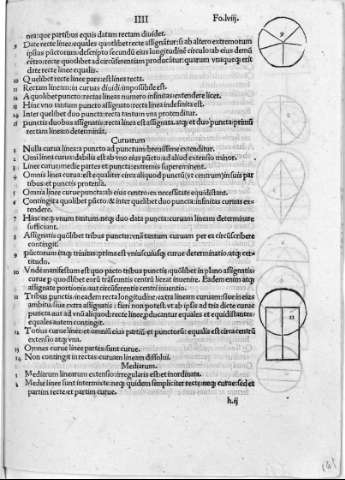 IIII Fo.lviij.
nea: que partibus equis datam rectam diuidet.
9 Date recte linee: equales quotlibet recte assignantur: si ab altero extremorum
ipsius punctorum descripto secundum eius longitudinē circulo ab eius
centro: recte quotlibet ad circumferentiam producantur: quarum vnaqueque erit
date recte linee equalis.
Quelibet recte linee pars: est linea recta.
Rectam lineam: in curuas diuidi impossibile est.
A quolibet puncto: rectas lineas numero infinitas extendere licet.
Hinc vno tantum puncto assignato: recta linea indefinita est.
Inter quelibet duo puncta: recta tantum vna protenditur.
punctis duobus assignatis: recta linea est assignata. atque et duo puncta: primū
rectam lineam determināt.
Curuarum
1 Nulla curua linea: a puncto ad punctum breuissime extenditur.
2 Omni linee curua: dabilis est ab vno eius pūcto ad aliud extensio minor.
3 Linee curue: medie partes et puncta: extremis supereminent.
4 Omnis linea curua: est equaliter circa aliquod punctū (et centrum) in suis par
tibus et punctis protensa.
5 Omnis linee curue puncta: ab eius centro ex necessitate equidistant.
6 Contingit a quolibet pūcto et inter quelibet duo puncta: infinitas curuas ex-
tendere.
7 Hinc neque vnum tantum: neque duo data puncta: curuam lineam determinate
sufficiunt.
8 Assignatis quibuslibet tribus punctis: vnā tantum curuam per ea circūscribere
contingit.
9 punctorum itaque trinitas prima est vniuscuiusque curue determinatio. atque cer-
titudo.
10 Vnde manifestum est quo pacto tribus punctis quolibet in plano assignatis:
curue
centrū liceat inuenire. Eadem enim atque
assignate portionis aut circūferentis centri inuentis.
11 Tribus punctis in eadem recta longitudine: extra lineam curuam: siue in eius
ambitu siue extra assignatis: fieri non potest vt ab ipsis ad
curue
puncta aut ad vnū aliquod: recte linee producantur equales et equidistantes:
equales autem contingit.
12 Totius curue linee: et omniū eius partiū et punctorū: equalis est circa centrū
extensio atque vna.
13 Omnes curue linee partes: sunt curue.
14 Non contingit in rectas: curuam lineam dissolui.
Mediarum.
1 Mediarum linearum extensio: irregularis est et inordinata.
2 Medie linee sunt intermixte: neque quidem simpliciter recte: neque curue: sed et
partim recte: et partim curue.
h.ij